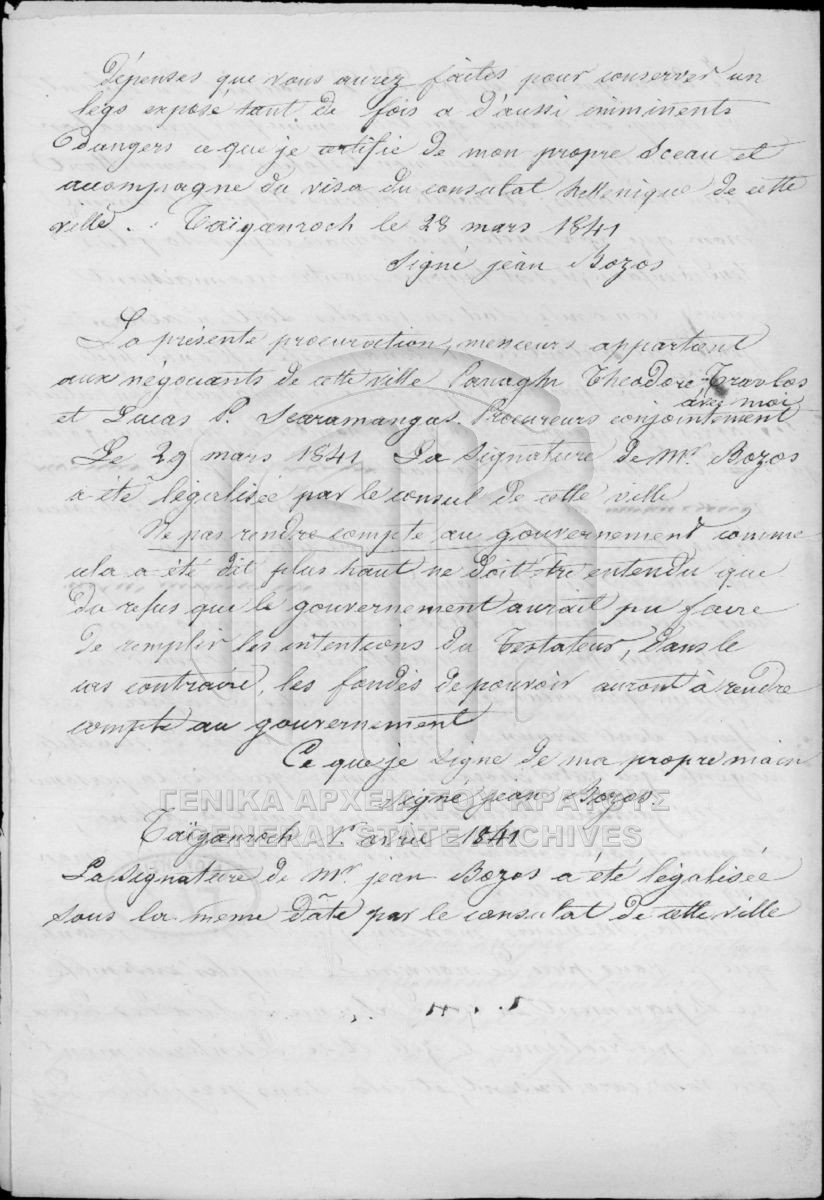 Dépenses que vous aurez faites pour conserver un
legs exposé tant de fois a d'aussi imminents
Dangers ce que je certifie de mon propre Sceau et
accompagne du visa du consulat hellenique de cette
ville. Taïganroch le 28 mars 1841
Signé jean Bozos
La présente procuration, messieurs appartient
aux négociants de cette ville Panaghi Theodore Travlos
avec moi
et Lucas P. Scaramangas. Procureurs conjointement
Le 29 mars 1841 La Signature de Mr Bozos
a été légalisée par le consul de cette ville
Ne pas rendre compte au gouvernement comme
cela a été dit plus haut ne doit être entendu que
du refus que le gouvernement aurait pu faire
de remplir les intentions du Testateur, dans le
cas contraire, les fondés de pouvoir auront à rendre
compte au gouvernement
Ce que je signe de ma propre main
signé jean Bozos.
ΓΕΝΙΚΑ ΑΡΧΕΙΑ ΤΟΥ ΚΡΑΤΟΥΣ
GENERAL STATE ARCHIVES
Taïganroch 1r avril 1841
La Signature de Mr jean Bozos a été légalisée
sous la même dâte par le consulat de cette ville